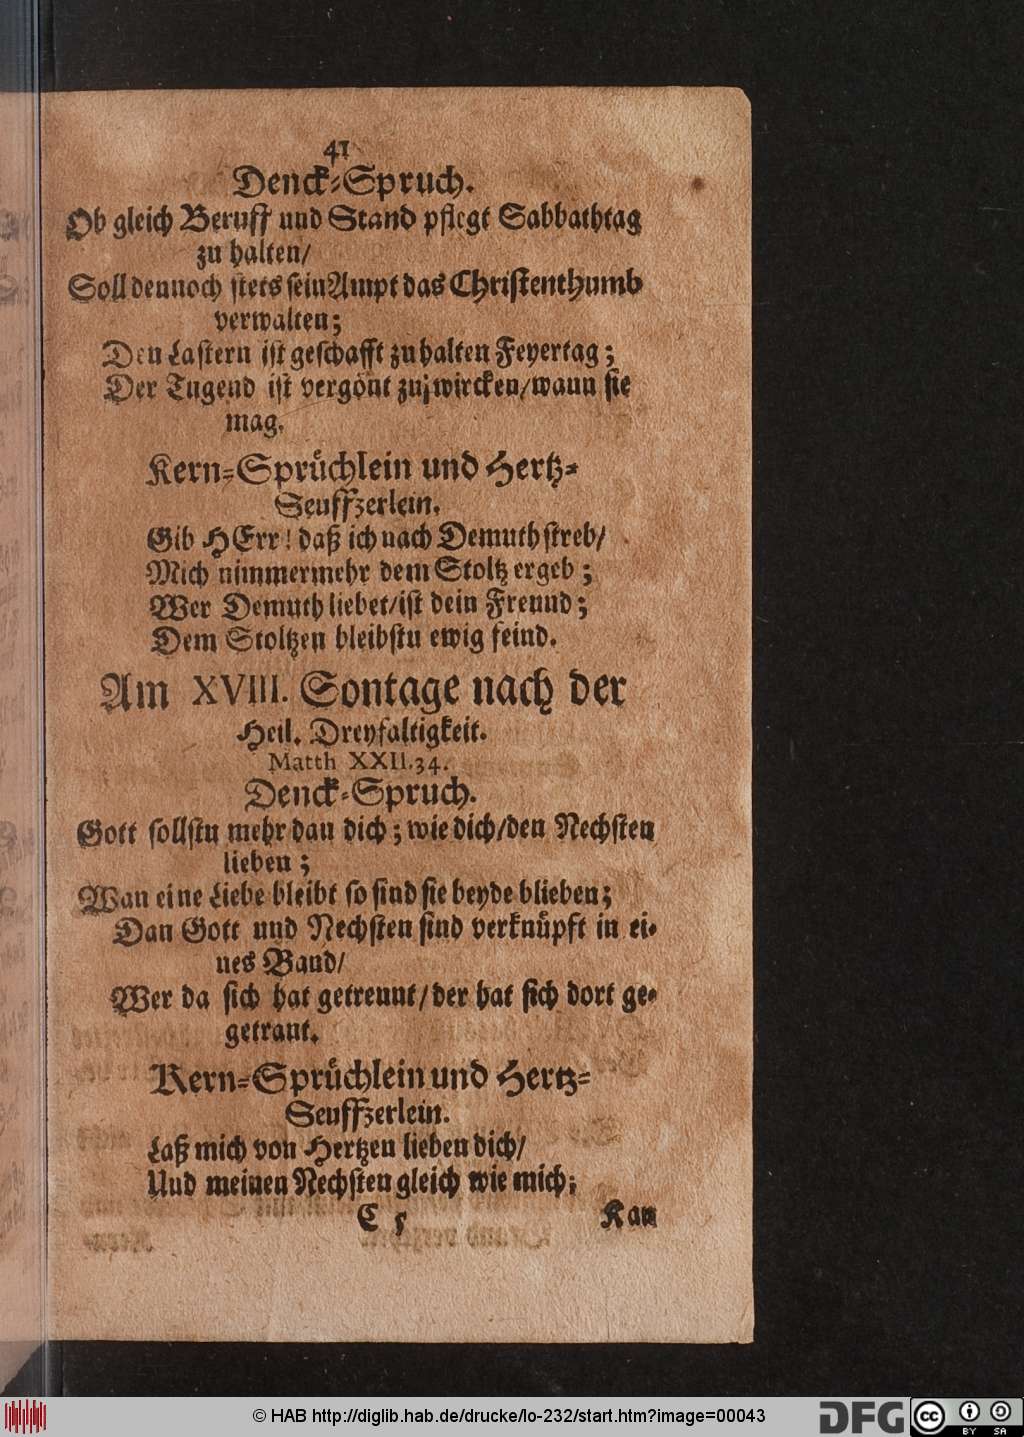 41
Denck-Spruch.
Ob gleich Beruff und Stand pflegt Sabbathtag
zu halten/
Soll dennoch stets sein Ampt das Christenthumb
verwalten;
Den Lastern ist geschafft zu halten Feyertag;
Der Tugend ist vergönt zu wircken/wann sie
mag.
Kern-Sprüchlein und Hertz-
Seuffzerlein.
Gib HErr! daß ich nach Demuth streb/
Mich nimmermehr dem Stoltz ergeb;
Wer Demuth liebet/ist dein Freund;
Dem Stoltzen bleibstu ewig feind.
Am XVIII. Sontage nach der
Heil. Dreyfaltigkeit.
Matth XXII.34.
Denck-Spruch.
Gott sollstu mehr dan dich; wie dich/den Nechsten
lieben;
Wan eine Liebe bleibt so sind sie beyde blieben;
Dan Gott und Nechsten sind verknüpft in ei-
nes Band/
Wer da sich hat getrennt/der hat sich dort ge-
getrant.
Kern-Sprüchlein und Hertz-
Seuffzerlein.
Laß mich von Hertzen lieben dich/
Und meinen Nechsten gleich wie mich;
C 5
Kan
© HAB http://diglib.hab.de/drucke/lo-232/start.htm?image=00043
DFG
cc
BY SA